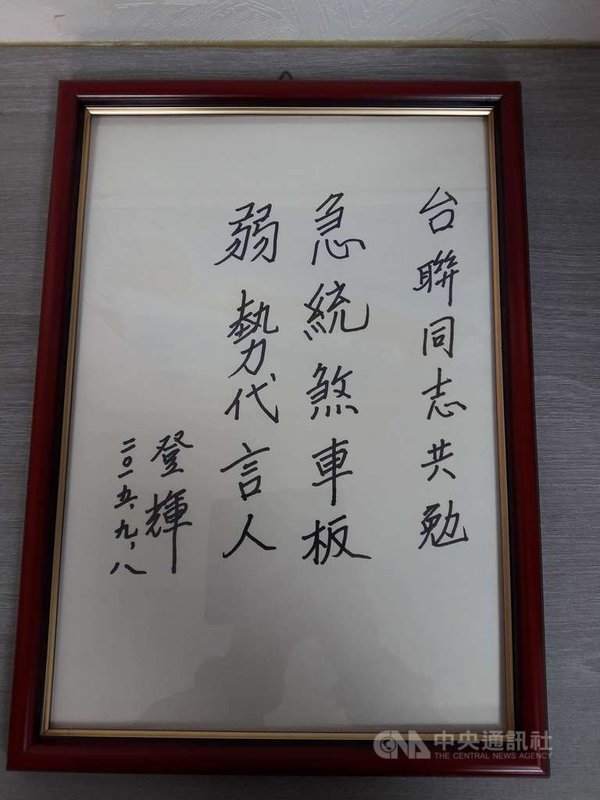 台聯同志共勉
急統煞車板
弱勢代言人
登輝
二〇一五、九、八
CNA 中央通訊社
THE CENTRAL NEWS AGENCY